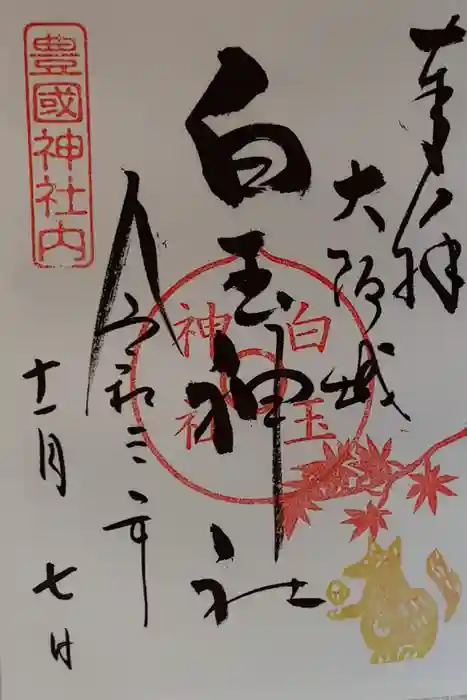 奉拝
大阪城
白玉神社
白玉
神社
令和三年
十一月七日
豊國神社内